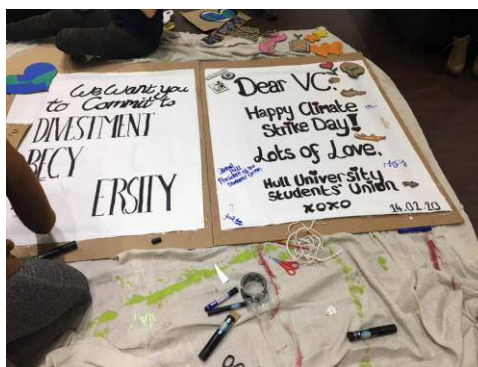 We Want you
to Commit to
DIVESTMENT
BECY
ERSITY
Dear VC,
Happy Climate
Strike Day!
Lots of Love,
Hull University
Students' Union
xoxo
14.02.20
President of the
Students' Union